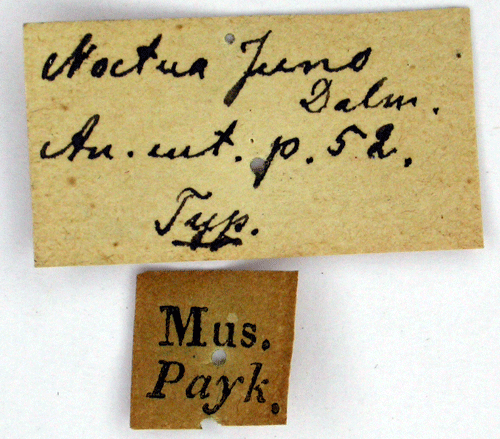 Noctua Juno
Dalm.
An. ent. p. 52.
Typ.
Mus.
Payk.